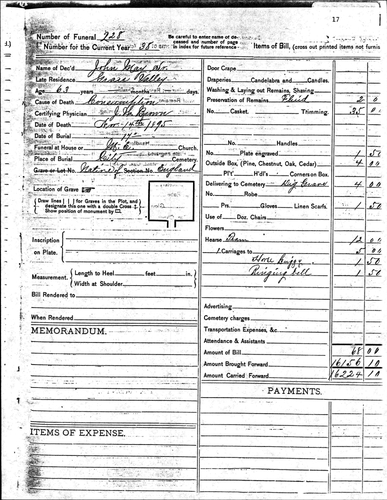 17
Number of Funeral 228
Number for the Current Year 38
Be careful to enter name of deceased and number of page in index for future reference.
Items of Bill, (cross out printed items not furnis
Name of Dec'd John May Sr.
Late Residence Grass Valley
Age 63 years months days.
Cause of Death Consumption
Certifying Physician
Date of Death 14th 1895
Date of Burial
Funeral at House or M. E. Church.
Place of Burial City Cemetery.
Grave or Lot No. Native of Section No. England
Location of Grave
Draw lines [ ] for Graves in the Plot, and designate this one with a double Cross
Show position of monument by
Inscription on Plate.
Measurement. Length to Heel feet in.
Width at Shoulder
Bill Rendered to
When Rendered
MEMORANDUM.
ITEMS OF EXPENSE.
Door Crape
Draperies Candelabra and Candles.
Washing & Laying out Remains, Shaving
Preservation of Remains Fluid 2 0
No. Casket. Trimming. 35 00
No. Handles
No. Plate engraved 1 50
Outside Box, (Pine, Chestnut, Oak, Cedar) 4 00
P/Y H'd'l'y Corners on Box
Delivering to Cemetery Dig Grave 4 00
No. Robe
Prs. Gloves Linen Scarfs. 1 50
Use of Doz. Chairs
Flowers
Hearse 12 00
Carriages to 5 00
1 50
Ringing Bell 1 50
Advertising
Cemetery charges
Transportation Expenses, &c.
Attendance & Assistants
Amount of Bill 68 00
Amount Brought Forward 16156 10
Amount Carried Forward 16224 10
PAYMENTS.